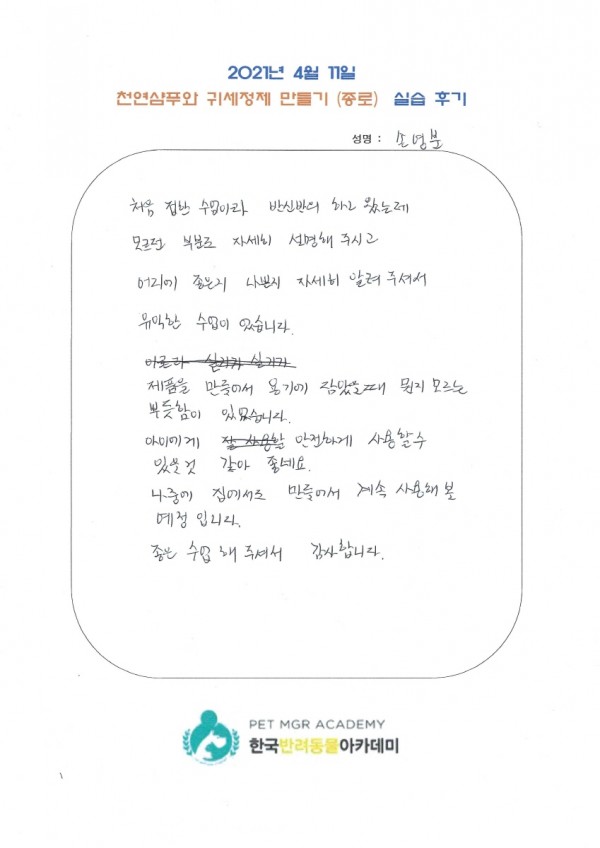 2021년 4월 11일
천연샴푸와 귀세정제 만들기 (종로) 실습 후기
성명 : 손영분
처음 접한 수업이라 반신반의 하고 왔는데
모르던 부분도 자세히 설명해 주시고
어디에 좋은지 나쁜지 자세히 알려 주셔서
유익한 수업이 있습니다.
제품을 만들어서 용기에 담았을때 뭔지 모르는
뿌듯함이 있었습니다.
아이에게 잘 사용할 안전하게 사용할수
있을것 같아 좋네요.
나중에 집에서도 만들어서 계속 사용해 볼
예정 입니다.
좋은 수업 해 주셔서 감사합니다.
PET MGR ACADEMY
한국반려동물아카데미